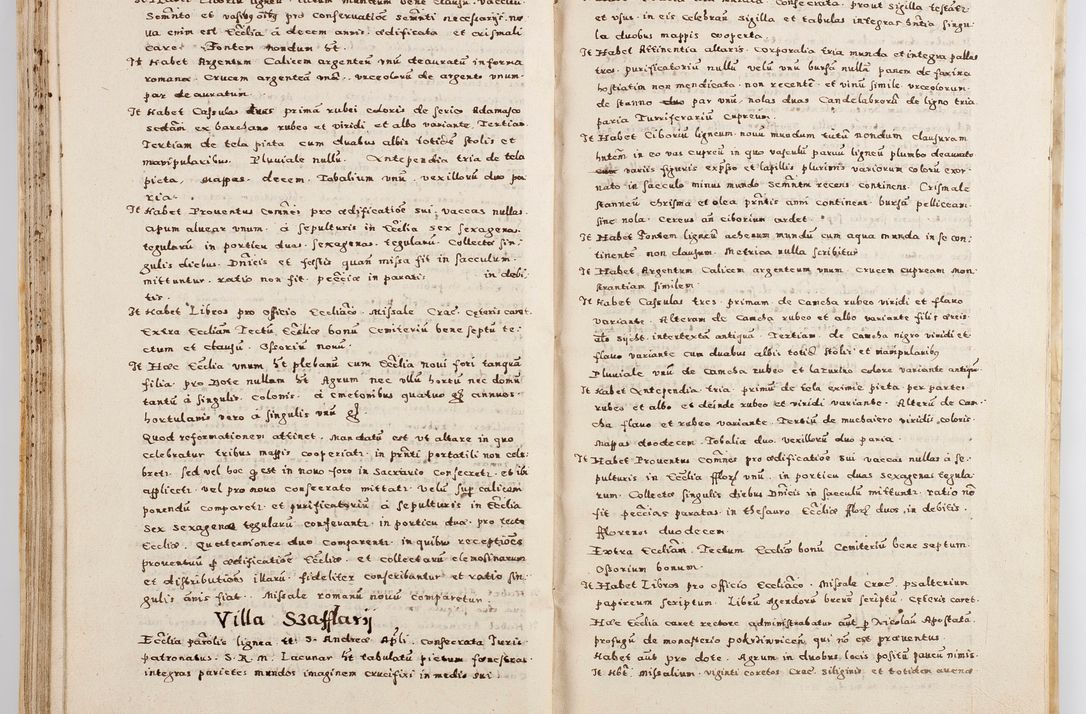 Semnto et vasis octis pro conservatioe semnti necessarijs. no
va enim est Ecclia á decem annis ædificata et crismali
caret. Fontem nondum ht.
It Habet Argentum Calicem argenteũ unũ deauratũ in forma
romana. Crucem argenteã unã. urceolorũ de argento unum
par deauratum.
It Habet Casulas duas primã rubei coloris de serico Adamasco
sedam ex barchano rubeo et viridi et albo variante Tertiam
Tertiam de tela picta cum duabus albis totidẽ stolis et
manipularibus. Pluviale nullũ. Antependia tria de tela
picta. Mappas decem. Tobalium unũ. vexillorũ duo pa
ria.
It Habet Proventus comnes pro ædificatioe sui. vaccas nullas
Apum alvear unum. á sepulturis in Ecclia sex sexagenas
tegularũ in porticu duas sexagenas tegularũ Collecta sin
gulis diebus Dnicis et festis quan missa fit in sacculum
mittuntur. ratio non fit. pecciæ in paratis in debi
tis.
It Habet Libros pro officio Eccliaco. Missale Crac. Ceteris caret.
Extra Eccliam Tectũ Eccliæ bonũ Cemiteriũ bene septũ te
ctum et clausũ. Ossoriũ novũ.
It Hæc Ecclia unum ht plebanũ cum Ecclia novi fori tanquã
filia. pro Dote nullam ht Agrum nec ullũ hortũ nec domũ
tantũ á singulis colonis á cmetonibus quatuor gs annuos.
hortulanis vero á singulis unũ gs
Quod reformationem attinet. Mandatũ est ut altare in quo
celebratur tribus mappis cooperiatr. in prnti portatili non cele
bretr. sed vel hoc q est in novo foro in Sacrario consecretr. et ibi
applicetr. vel pro novo consecrato mittatr. Velũ sup calicem
ponendũ comparetr et purificatoriũ á sepulturis in Ecclia
sex sexagenas tegularũ conservantr. in porticu duæ. pro tecto
Eccliæ. Quaterniones duo comparentr. in quibus receptiões
proventuũ p ædificatiõe Eccliæ. et collectarũ elemosinarum
et distributiões illarũ. fideliter conscribantur et ratio sin
gulis anis fiat. Missale romanũ novũ comparetur
Villa Szafflarij
Ecclia parolis lignea tt. S. Andreæ Apli. consecrata Juris
patronatus. S. R. M. Lacunar ht tabulatũ pictum fenestras
integras parietes mundos imaginem crucifixi in medio sui.
consecrata. prout sigilla testatr
et usus in eis celebran. sigilla et tabulas integras bntia singu
la duobus mappis cooperta.
It Habet Attinentia altaris. corporalia tria munda et integra pallas
tres. purificatoriũ nullũ velũ unũ bursã nullã panem de farina
hostiatim non mendicata. non recentẽ. et vinũ simile. urceolorum
de stanno duo par unũ. nolas duas Candelabrorũ de ligno tria
paria Turriferariũ Cupreum.
It Habet Ciboriũ ligneum. novũ mundum tutũ nondum clausuram
hntem. in eo vas cupreũ in quo vasculũ parvũ ligneũ plumbo deaurato
variis figuris expsso et lapillis plurimis variorum colorũ exor
nato in sacculo minus mundo Semntm recens continens. Crismale
stanneũ chrisma et olea prntis anni continens bursã pelliceam
sine nola. Cereus an ciborium ardet.
It Habet Fontem ligneũ ad usum mundũ cum aqua munda in se con
tinente non clausum. Metrica nulla scribitur
It Habet Argentum Calicem argenteum unum. Crucem cupream mon
strantiam similem.
It Habet Casulas tres. primam de Camcha rubeo viridi et flavo
variante. Alteram de Camcha rubeo et albo variante filis aureis
intertexta antiquã. Tertiam de Camcha nigro viridi et
flavo variante cum duabus albis totis stolis et manipularibus
Pluviale unũ de Camcha rubeo et lazurino colore variante antiquũ
It Habet Antependia tria. primũ de tela eximie picta. per partes
rubeo et albo et deinde rubeo et viridi variante. Alterũ de Cam
cha flavo et rubeo variante. Tertiũ de muchaiero viridis coloris
Mappas duodecem. Tobalia duo. vexillorũ duo paria.
It Habet Proventus Comnes pro ædificatioe sui. vaccas nullas á se
pulturis in Ecclia fflorẽ unũ. in porticu duas sexagenas tegula
rum. Collecta singulis diebus Dnicis in sacculũ mittuntr. ratio nõ
fit. peccias paratas in thesauro Eccliæ fflorẽ duos, in debitis
fflorenos duodecem.
Extra Eccliam. Tectum Eccliæ bonũ Cemiteriũ bene septum.
Ossorium bonum.
It Habet Libros pro officio Eccliaco. Missale Crac. psalterium
papireum scriptum. Librũ Agendorũ breve scriptũ. Ceteris caret.
Hæc Ecclia caret rectore administrabatur aut p Nicolaũ Apostatã
profugũ de monasterio qui nõ est præventus.
Habet aut pro dote. Agrum in duobus locis positũ paucũ nimis.
It Hbt. Missalium. viginti coretos Crac. siliginis et totidem avenæ